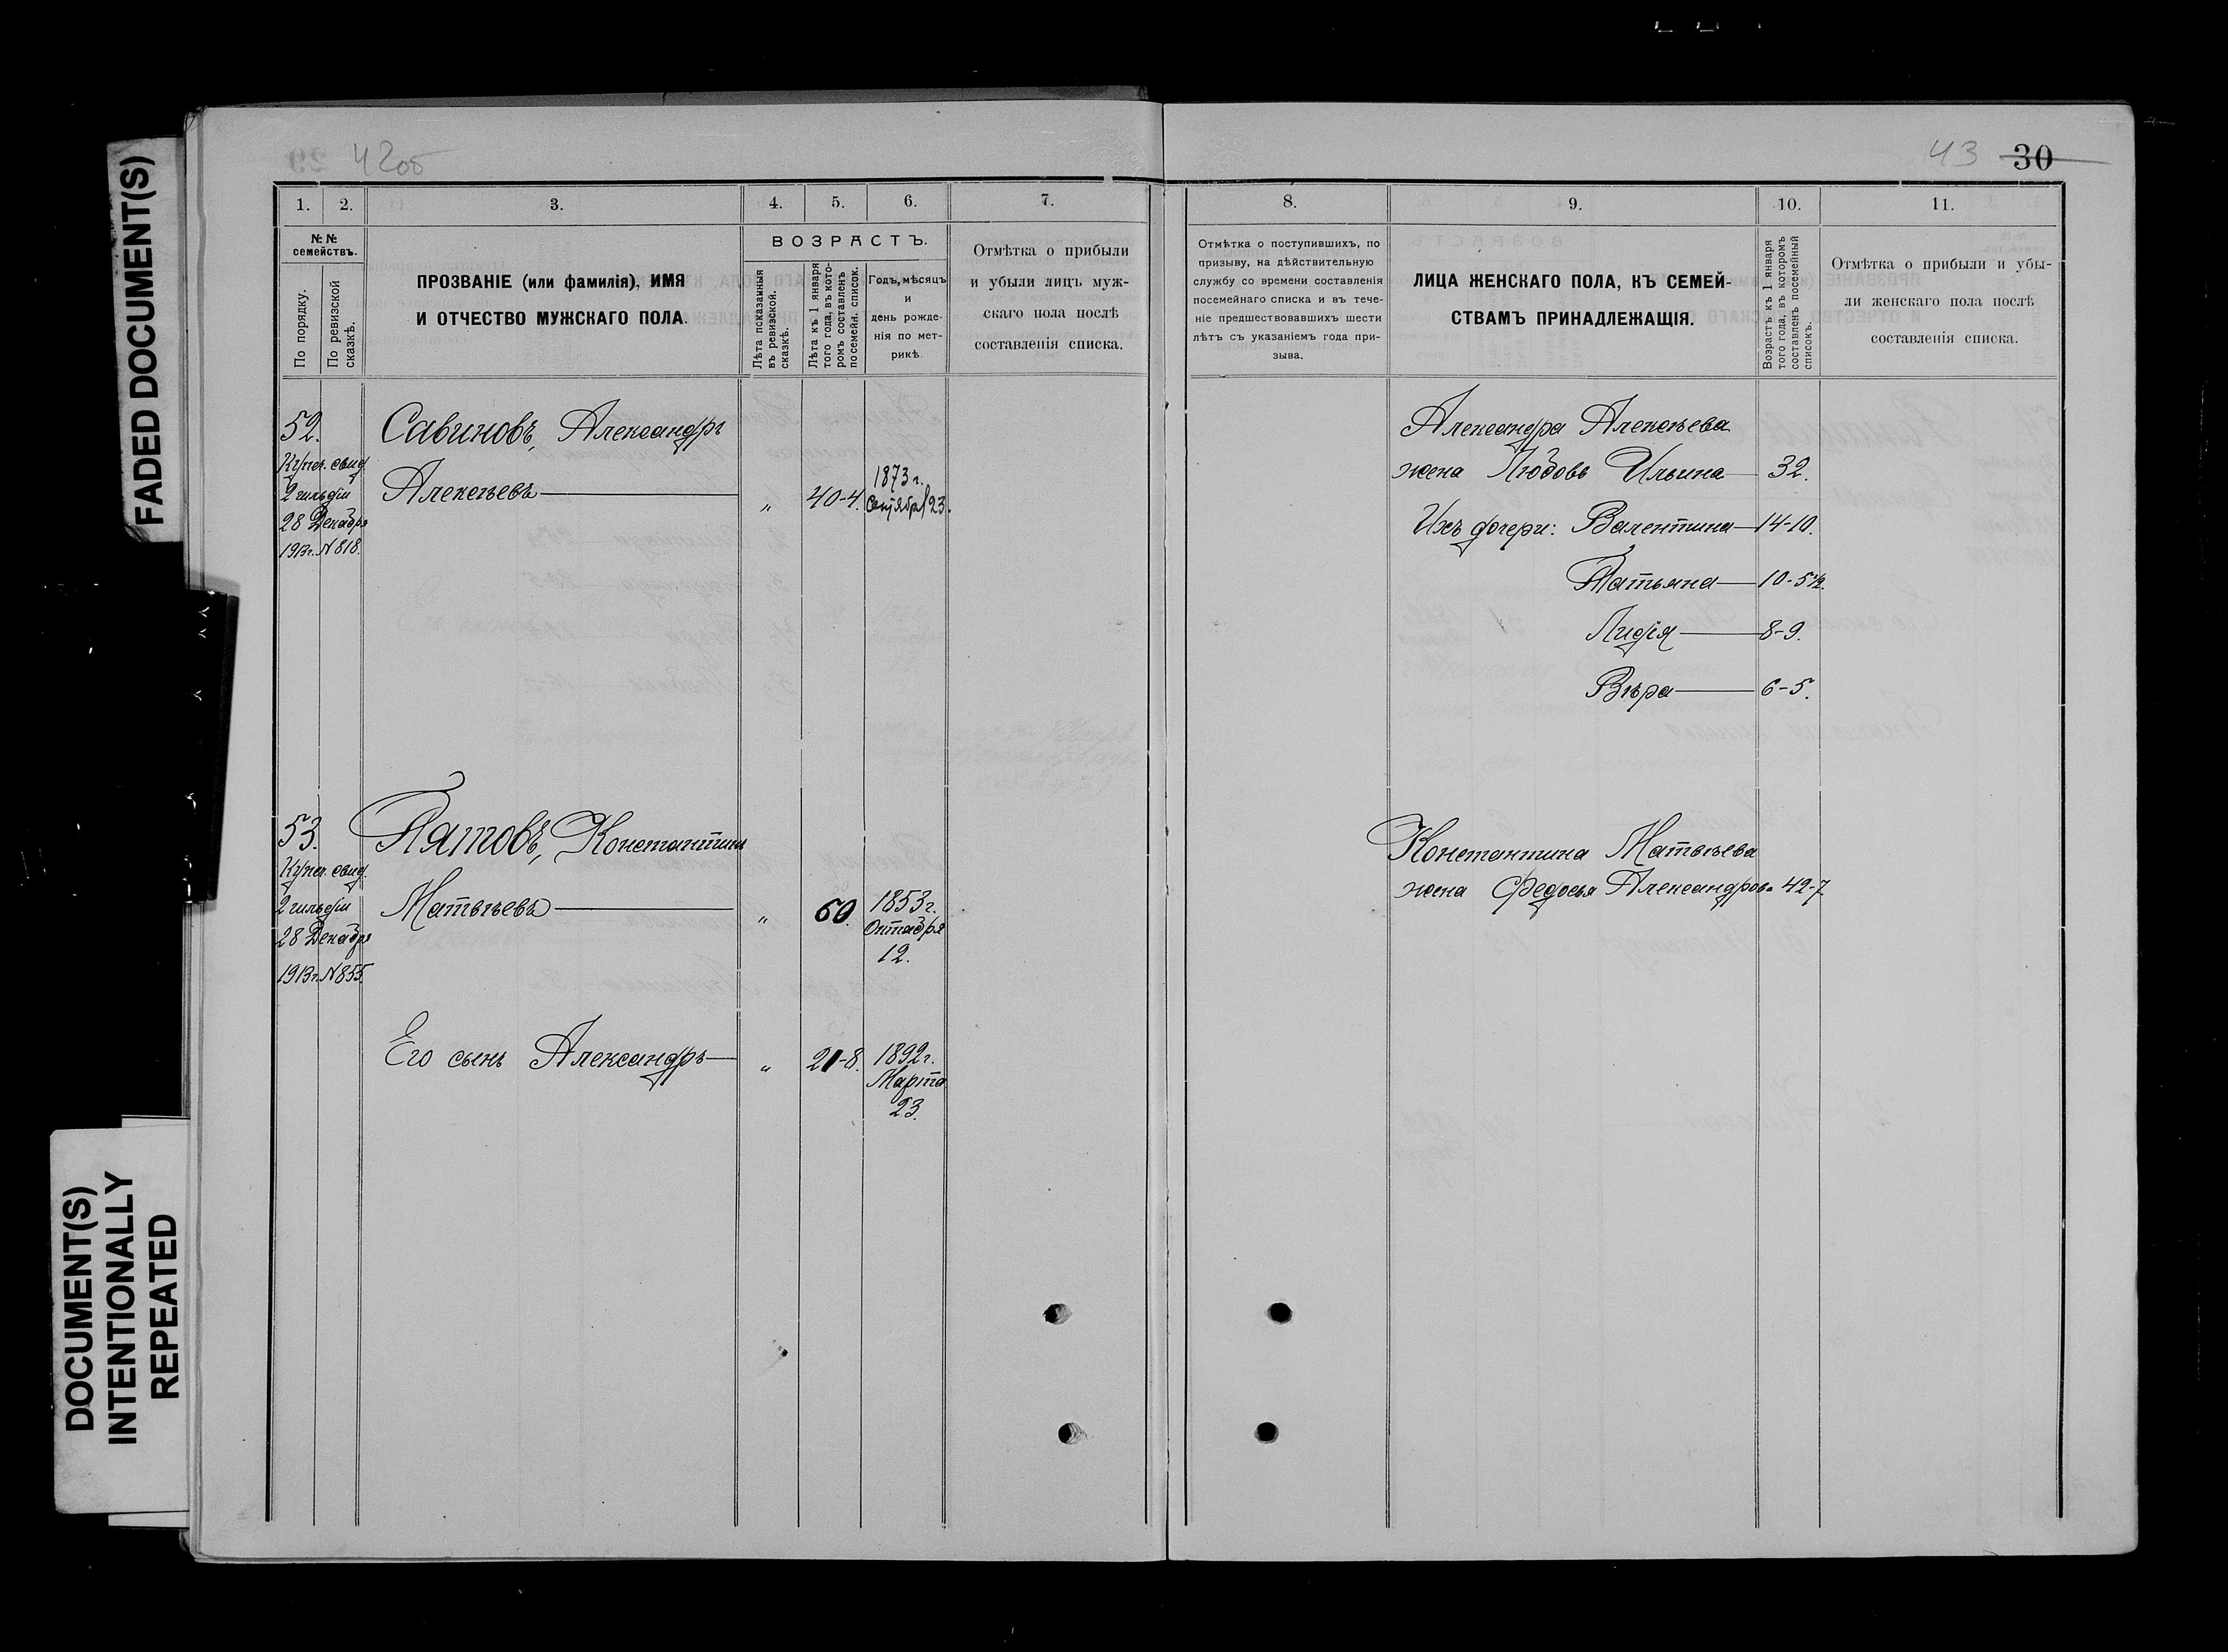 FADED DOCUMENT(S)
DOCUMENT(S)
INTENTIONALLY
REPEATED
42об
43 30
1. 2. 3. 4. 5. 6. 7.
№ №
семействъ.
По порядку.
По ревизской
сказкѣ.
ПРОЗВАНІЕ (или фамилія), ИМЯ
И ОТЧЕСТВО МУЖСКАГО ПОЛА.
ВОЗРАСТЪ.
Лѣта показанныя
въ ревизской.
сказкѣ.
Лѣта къ 1 января
того года, въ кото-
ромъ составленъ
посемейн. список.
Годъ, мѣсяцъ
и
день рожде-
нія по мет-
рикѣ.
Отмѣтка о прибыли
и убыли лицъ муж-
скаго пола послѣ
составленія списка.
52.
Купеч. свид.
2 гильдіи
28 Декабря
1913 г. № 818.
Савиновъ, Александръ
Алексѣевъ
" 40-4.
1873 г.
Сентября 23.
53.
Купеч. свид.
2 гильдіи
28 Декабря
1913 г. № 855.
Пятовъ, Константинъ
Матвѣевъ
" 60.
1853 г.
Октября
12.
Его сынъ Александръ
" 21-8.
1892 г.
Марта
23.
8. 9. 10. 11.
Отмѣтка о поступившихъ, по
призыву, на дѣйствительную
службу со времени составленія
посемейнаго списка и въ тече-
ніе предшествовавшихъ шести
лѣтъ съ указаніемъ года при-
зыва.
ЛИЦА ЖЕНСКАГО ПОЛА, КЪ СЕМЕЙ-
СТВАМЪ ПРИНАДЛЕЖАЩІЯ.
Возрастъ къ 1 января
того года, въ которомъ
составленъ посемейный
списокъ.
Отмѣтка о прибыли и убы-
ли женскаго пола послѣ
составленія списка.
Александра Алексѣева
жена Любовь Ильина 32.
Ихъ дочери: Валентина 14-10.
Татьяна 10-5½.
Лидія 8-9.
Вѣра 6-5.
Константина Матвѣева
жена Федосья Александрова 42-7.